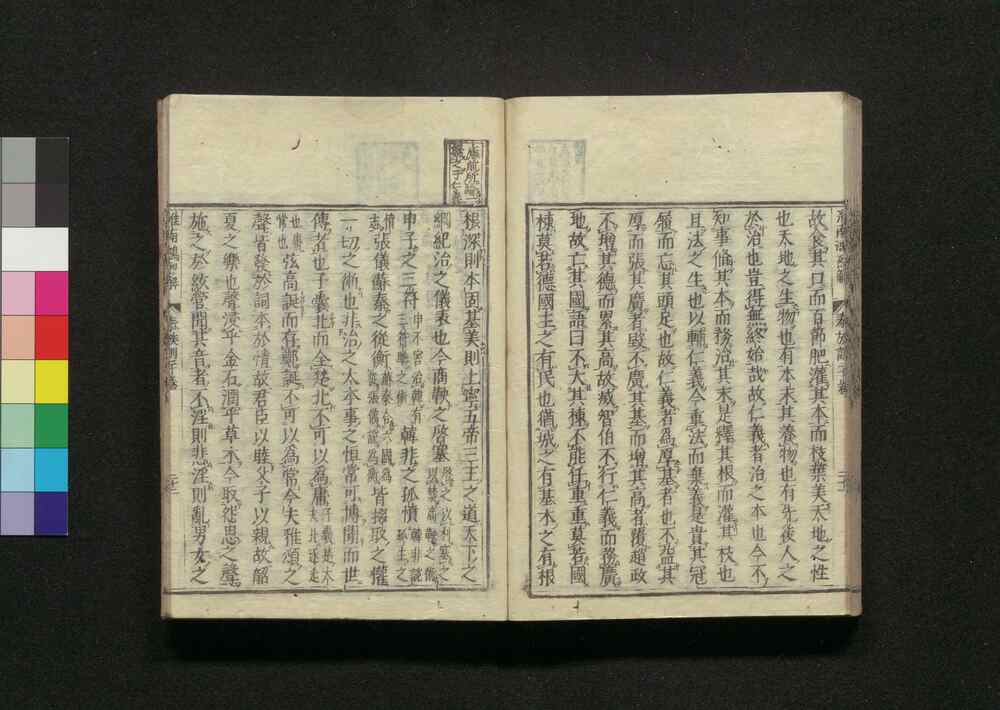 故食其口而百節肥灌其本而枝葉美天地之性
也天地之生物也有本末其養物也有先後人之
於治也豈得無終始哉故仁義者治之本也今不
知事脩其本而務治其末是釋其根而灌其枝也
且法之生也以輔仁義今重法而棄義是貴其冠
履而忘其頭足也故仁義者為厚基者也不益其
厚而張其廣者毀不廣其基而增其高者覆趙政
不增其德而累其高故滅智伯不行仁義而務廣
地故亡其國語曰不大其棟不能任重重莫若國
棟莫若德國主之有民也猶城之有基木之有根
根深則本固基美則上寧五帝三王之道天下之
綱紀治之儀表也今商鞅之啓塞
申子之三符 韓非之孤憤
張儀蘇秦之從衡 皆掇取之權
一切之術也非治之大本事之恒常可博聞而世
傳者也子囊北而全楚北不可以為庸
弦高誕而存鄭誕不可以為常今夫雅頌之
聲皆發於詞本於情故君臣以睦父子以親故韶
夏之樂也聲浸乎金石潤乎草木今取怨思之聲
施之於絃管聞其音者不淫則悲淫則亂男女之